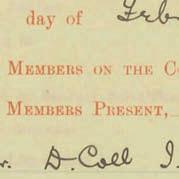 day of Feb
MEMBERS ON THE C
MEMBERS PRESENT,
r. D. Coll J.